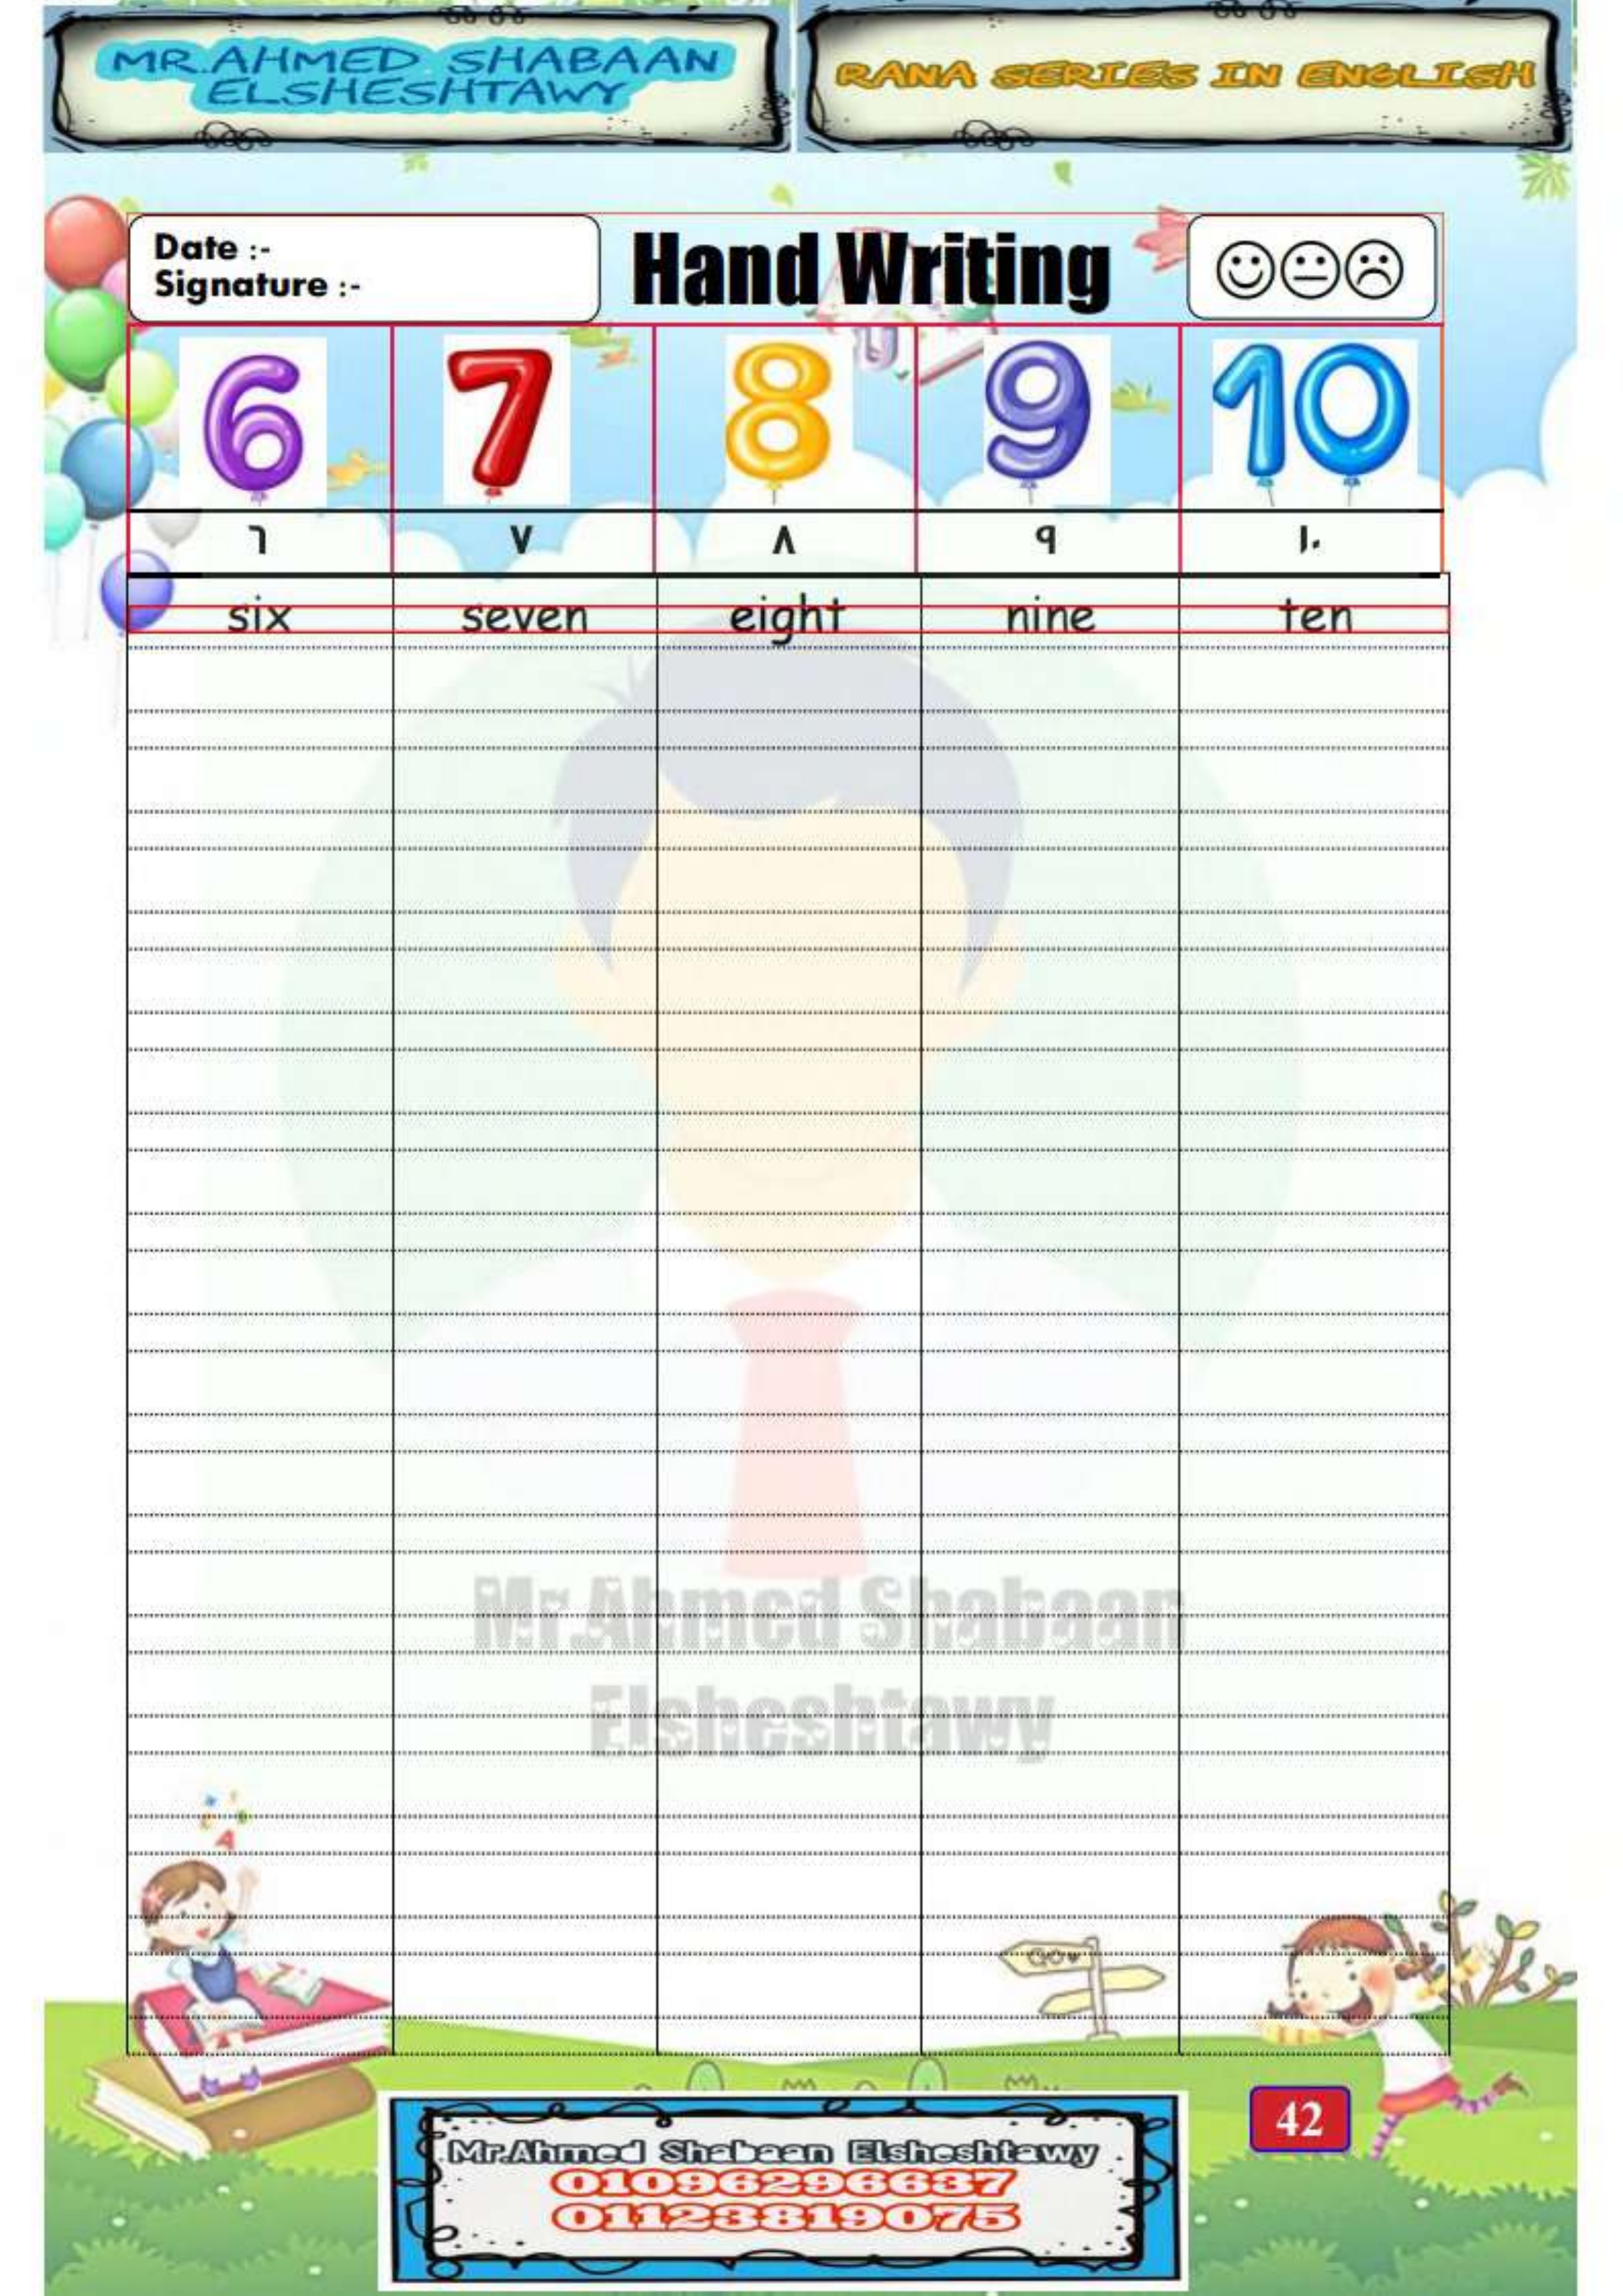 MR.AHMED SHABAAN
ELSHESHTAWY
RANA SERIES IN ENGLISH
Date :-
Signature :-
Hand Writing
6 7 8 9 10
٦ ٧ ٨ ٩ ١٠
six seven eight nine ten
Mr.Ahmed Shabaan
Elsheshtawy
A
42
Mr.Ahmed Shabaan Elsheshtawy
01096296637
01123819075